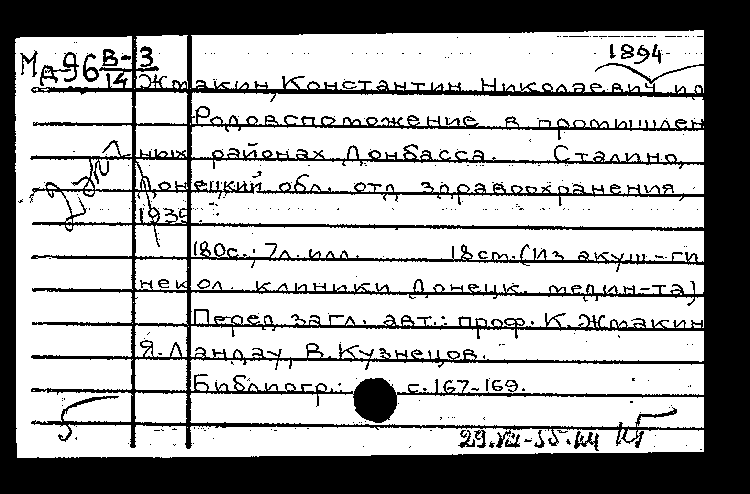 1894
МА96 В-3/14
Жмакин, Константин Николаевич и д
Родовспоможение в промышлен
ных районах Донбасса. Сталино,
Донецкий обл. отд здравоохранения,
193
180с.; 7л. илл. 18см. (Из акуш.-ги
некол. клиники Донецк. медин-та)
Перед загл. авт.: проф. К. Жмакин
Я. Ландау, В. Кузнецов.
Библиогр.: с. 167-169.
5